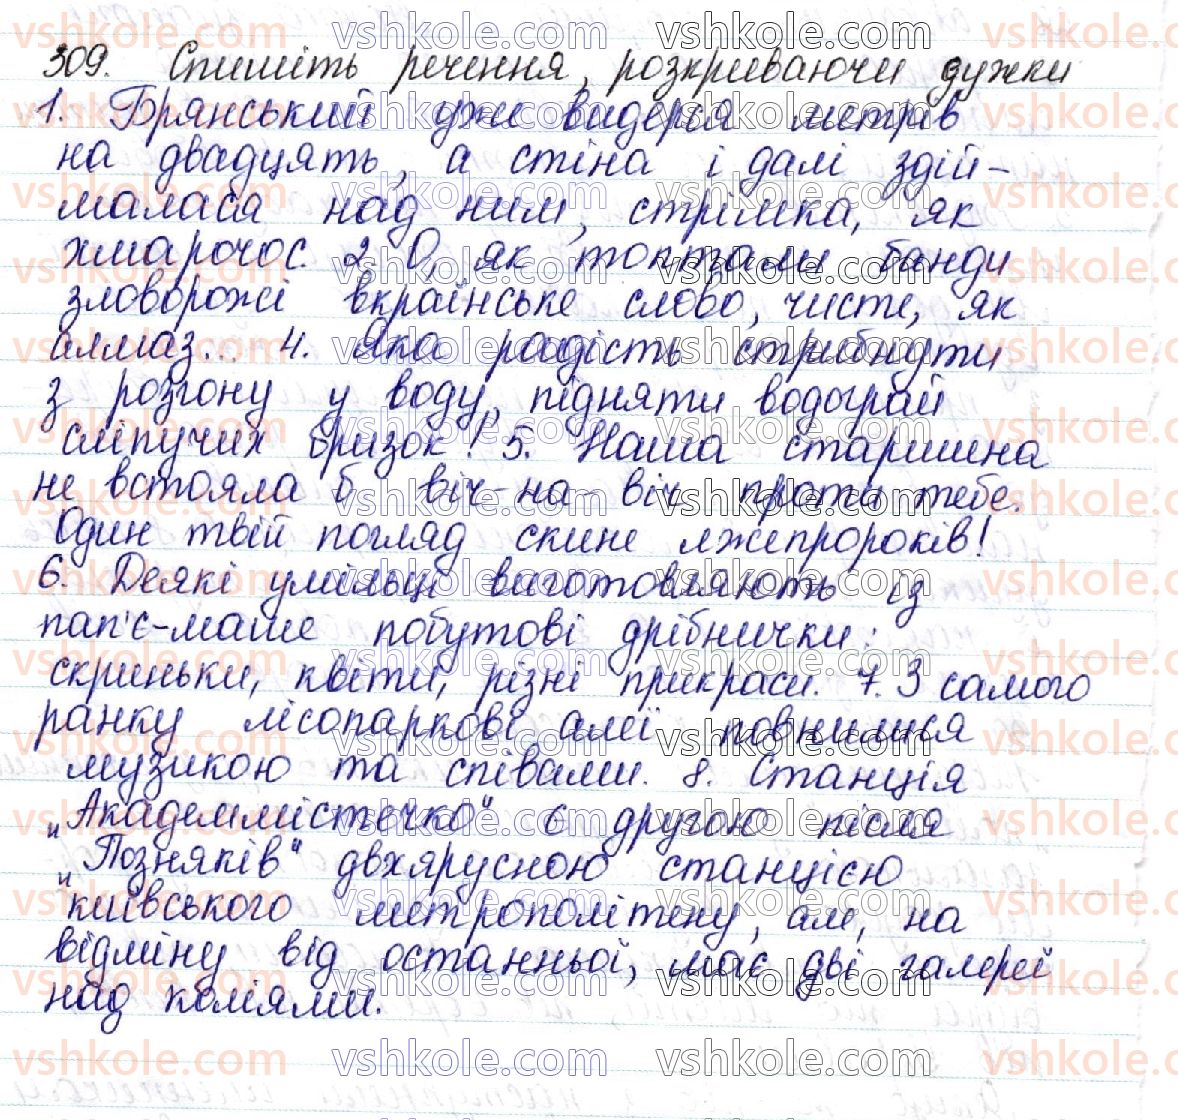 309. Спишіть речення, розкриваючи дужки
1. Брянський уже видерся метрів
на двадцять, а стіна і далі здій-
малася над ним, стрімка, як
хмарочос. 2. О, як топтали банди
зловорожі вкраїнське слово, чисте, як
алмаз... 4. Яка радість стрибнути
з розгону у воду, підняти водограй
сліпучих бризок! 5. Наша старшина
не встояла б віч-на-віч проти тебе.
Один твій погляд скине лжепророків!
6. Деякі умільці виготовляють із
пап'є-маше побутові дрібнички:
скриньки, квіти, різні прикраси. 7. З самого
ранку лісопаркові алеї повнилися
музикою та співами. 8. Станція
„Академмістечко" є другою після
„Позняків" двхярусною станцією
київського метрополітену, але, на
відміну від останньої, має дві галереї
над коліями.
vshkole.com